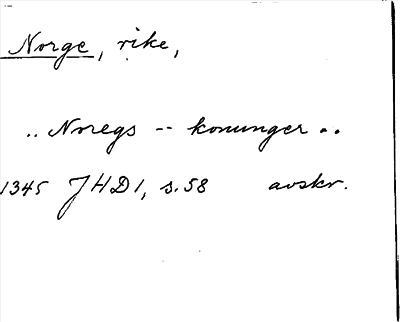 Norge, rike,
.. Noregs -- konunger ..
1345 JHD 1, s. 58 avskr.